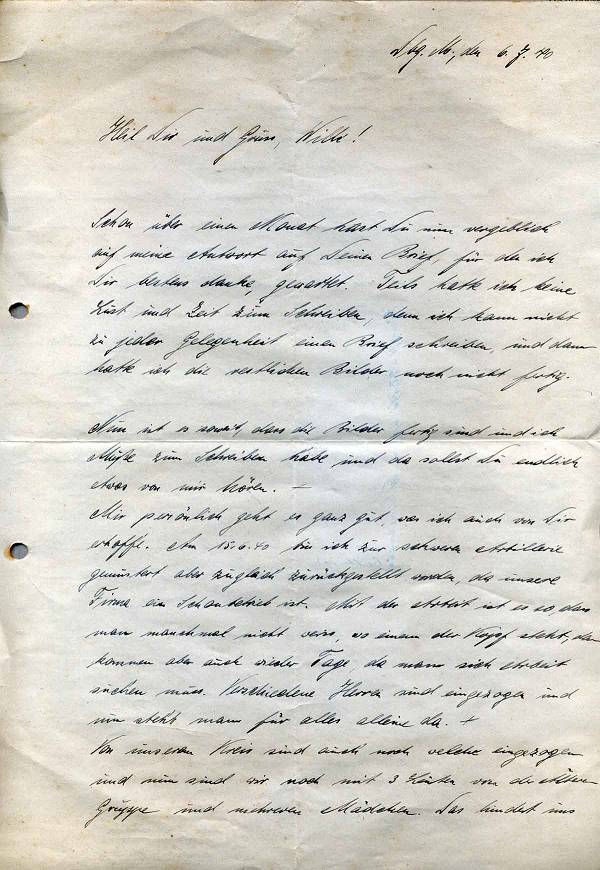 Dbg. M., den 6.7.40
Heil Dir und Gruss, Willi!
Schon über einen Monat hast Du nun vergeblich
auf meine Antwort auf Deinen Brief, für den ich
Dir bestens danke, gewartet. Teils hatte ich keine
Lust und Zeit zum Schreiben, denn ich kann nicht
zu jeder Gelegenheit einen Brief schreiben, und dann
hatte ich die restlichen Bilder noch nicht fertig.
Nun ist es soweit, dass die Bilder fertig sind und ich
Muße zum Schreiben habe und da sollst Du endlich
etwas von mir hören. –
Mir persönlich geht es ganz gut, was ich auch von Dir
erhoffe. Am 15.6.40 bin ich zur schweren Artillerie
gemustert aber zugleich zurückgestellt worden, da unsere
Firma ein ist. Mit der Arbeit ist es so, dass
man manchmal nicht weiss, wo einem der Kopf steht, dann
kommen aber auch wieder Tage, da man sich Arbeit
suchen muss. Verschiedene Herren sind eingezogen und
nun steht man für alles alleine da. +
Von unserem Kreis sind auch noch welche eingezogen
und nun sind wir noch mit 3 Leuten von der älteren
Gruppe und mehreren Mädchen. Das hindert uns